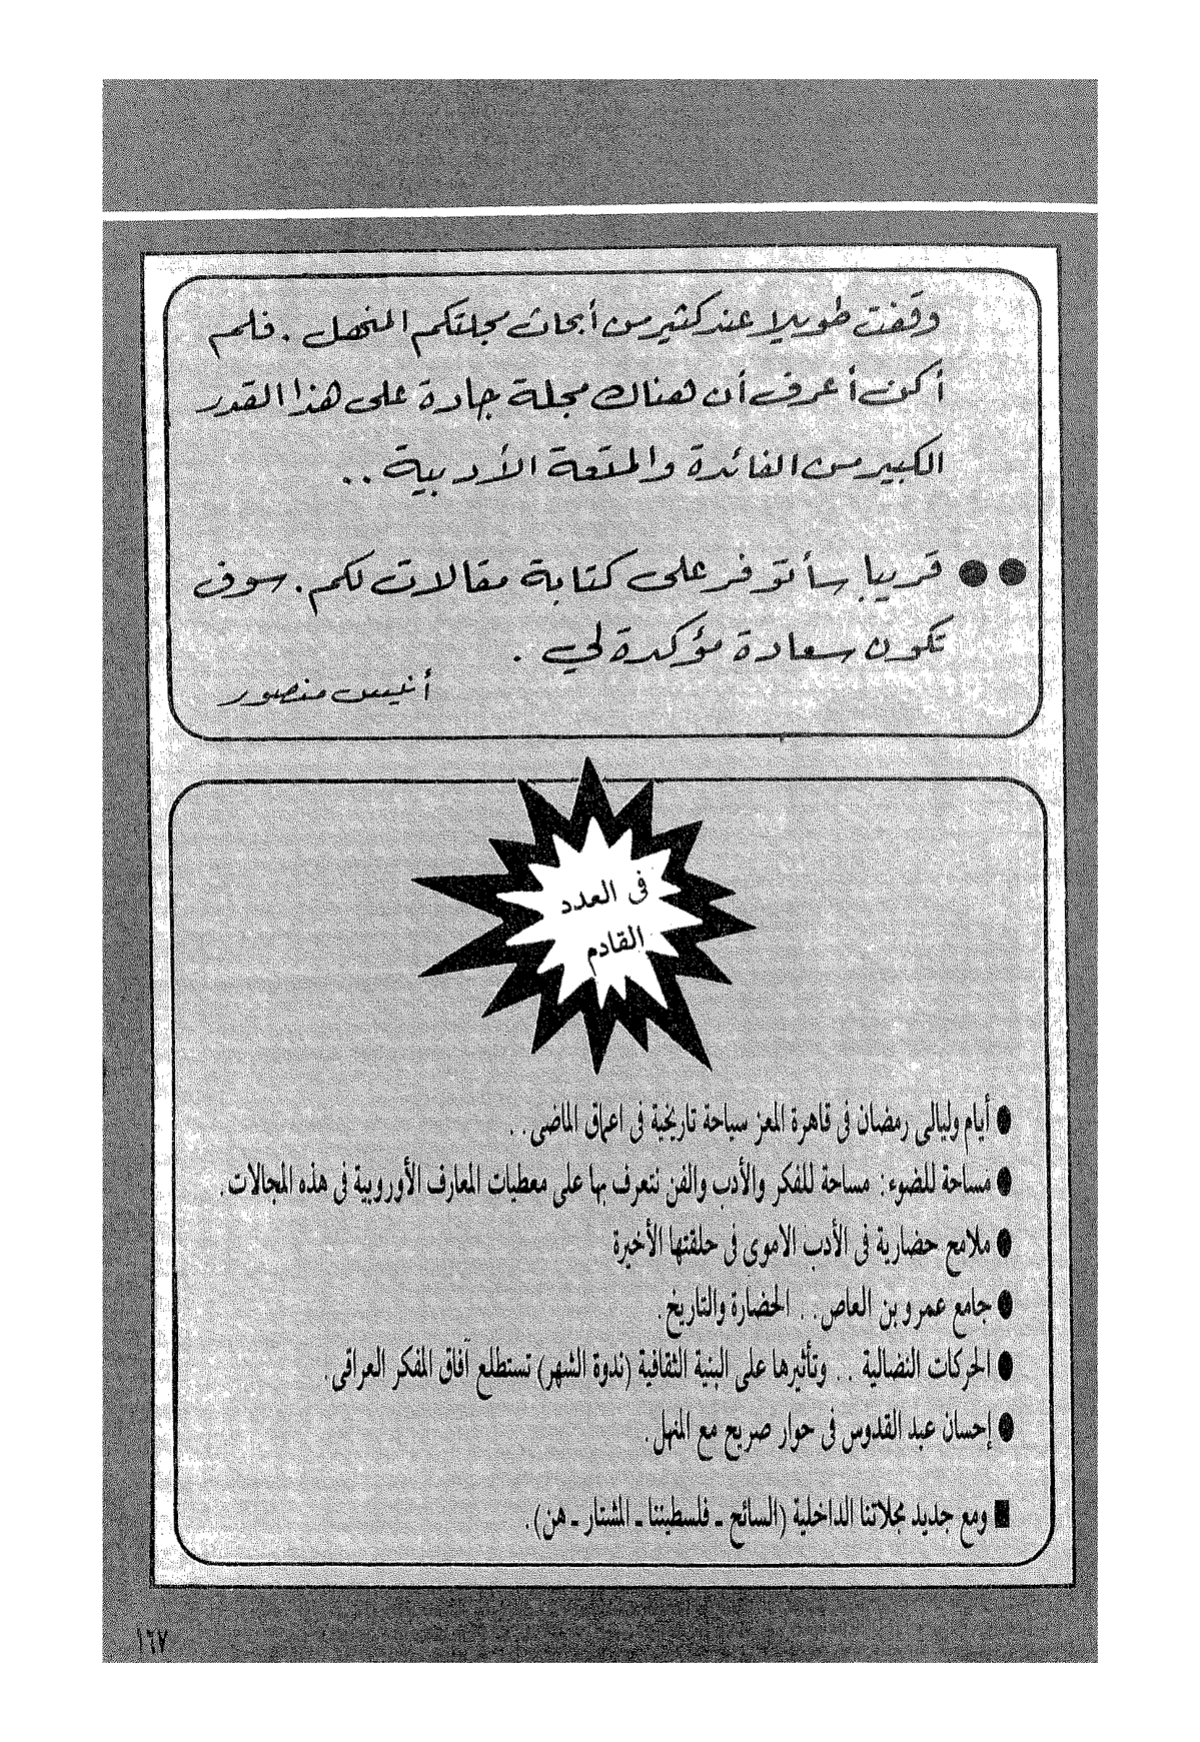 وقفت طويلا عند كثير من أبحاث مجلتكم المنهل . فلم
أكن أعرف أن هناك مجلة جادة على هذا القدر
الكبير من الفائدة والمتعة الأدبية ..
●● قريبا سأتوفر على كتابة مقالات لكم . سوف
تكون سعادة مؤكدة لي .
أنيس منصور
فى العدد
القادم
● أيام وليالى رمضان فى قاهرة المعز سياحة تاريخية فى اعماق الماضى . .
● مساحة للضوء: مساحة للفكر والأدب والفن نتعرف بها على معطيات المعارف الأوروبية فى هذه المجالات .
● ملامح حضارية فى الأدب الاموى فى حلقتها الأخيرة
● جامع عمرو بن العاص . . الحضارة والتاريخ .
● الحركات النضالية . . وتأثيرها على البنية الثقافية (ندوة الشهر) تستطلع آفاق المفكر العراقى .
● إحسان عبد القدوس فى حوار صريح مع المنهل .
■ ومع جديد مجلاتنا الداخلية (السائح ـ فلسطيننا ـ المشتار ـ هن) .
١٦٧